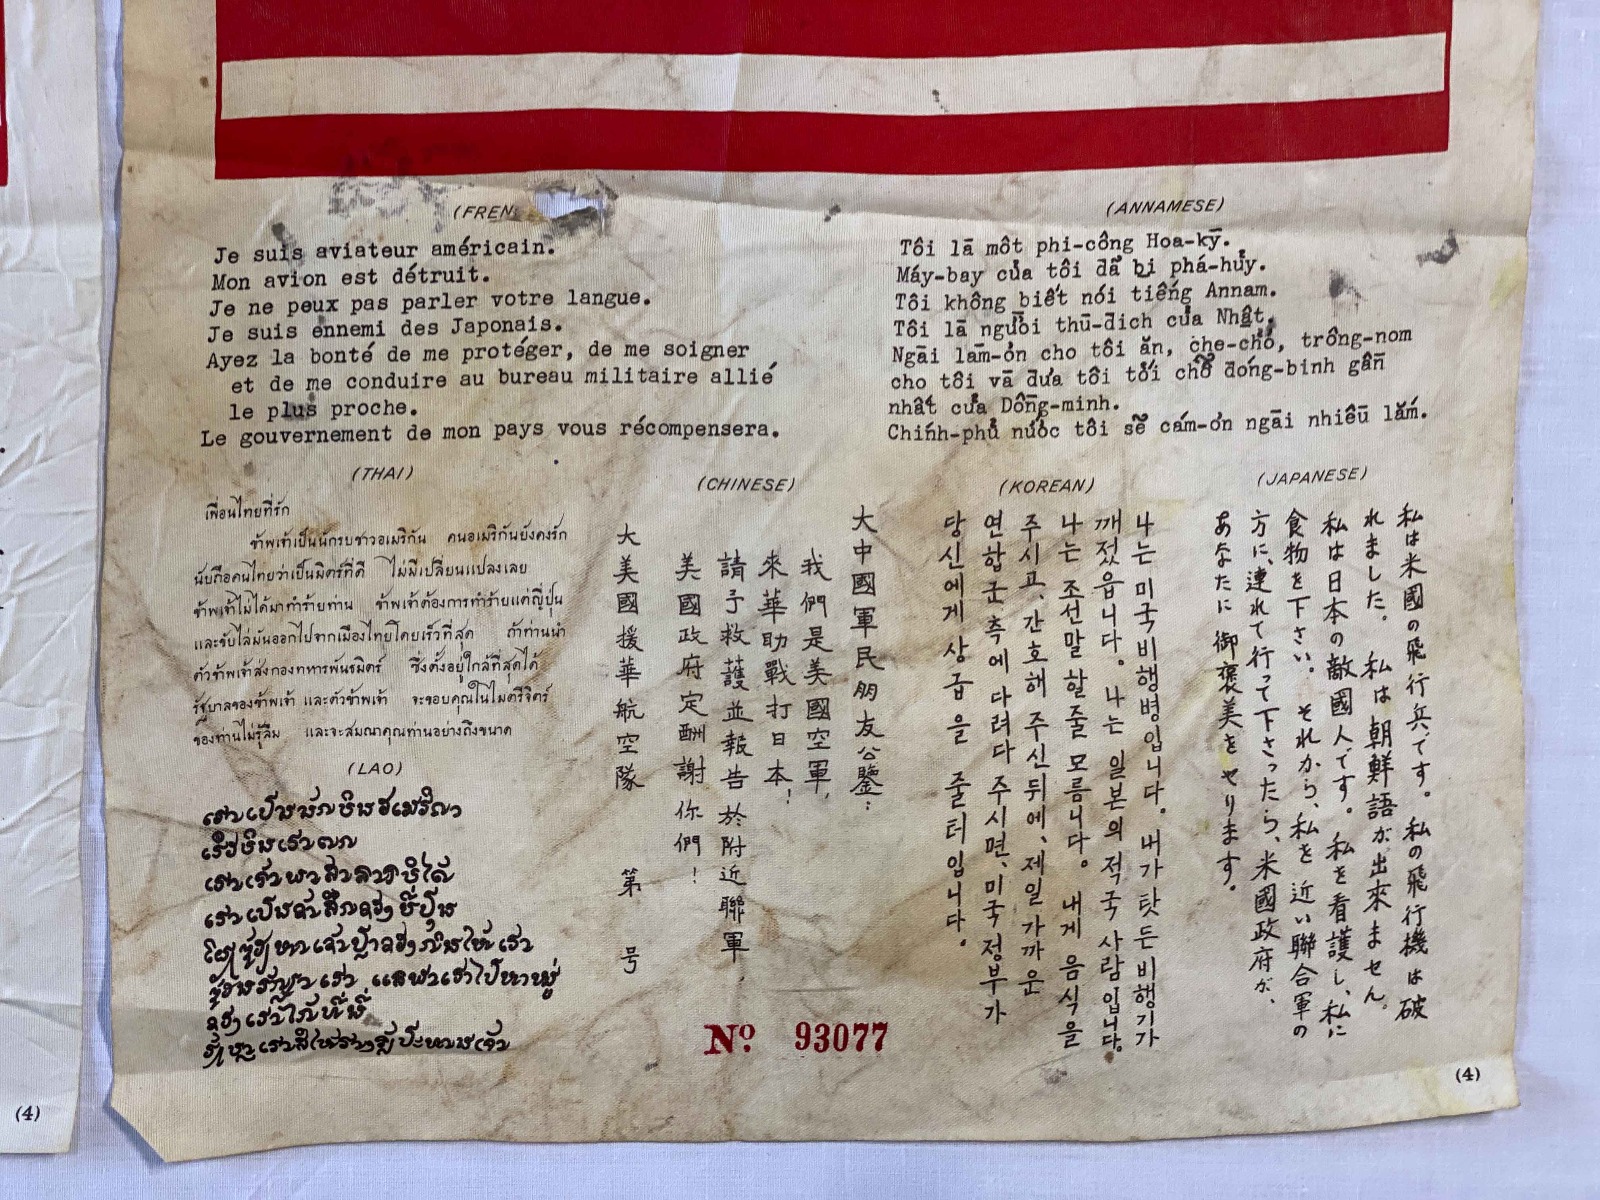 (FREN
Je suis aviateur américain.
Mon avion est détruit.
Je ne peux pas parler votre langue.
Je suis ennemi des Japonais.
Ayez la bonté de me protéger, de me soigner
et de me conduire au bureau militaire allié
le plus proche.
Le gouvernement de mon pays vous récompensera.
(ANNAMESE)
Tôi lā môt phi-công Hoa-kȳ.
Máy-bay của tôi đã bi phá-hủy.
Tôi không biết nói tiếng Annam.
Tôi lā người thū-đich của Nhật.
Ngāi lām-ơn cho tôi ăn, che-chở, trông-nom
cho tôi vā đưa tôi tới chỗ đóng-binh gần
nhất của Dông-minh.
Chính-phủ nước tôi sẽ cám-ơn ngāi nhiêū lắm.
(THAI)
เพื่อนไทยที่รัก
ข้าพเจ้าเป็นนักรบชาวอเมริกัน คนอเมริกันยังคงรัก
นับถือคนไทยว่าเป็นมิตร์ที่ดี ไม่มีเปลี่ยนแปลงเลย
ข้าพเจ้าไม่ได้มาทำร้ายท่าน ข้าพเจ้าต้องการทำร้ายแต่ญี่ปุ่น
และขับไล่มันออกไปจากเมืองไทยโดยเร็วที่สุด ถ้าท่านนำ
ตัวข้าพเจ้าส่งกองทหารพันธมิตร์ ซึ่งตั้งอยู่ใกล้ที่สุดได้
รัฐบาลของข้าพเจ้า และตัวข้าพเจ้า จะขอบคุณในไมตรีจิตร์
ของท่านไม่รู้ลืม และจะสมณาคุณท่านอย่างถึงขนาด
(LAO)
(CHINESE)
大中國軍民朋友公鑒：
我們是美國空軍，
來華助戰打日本！
請予救護並報告於附近聯軍，
美國政府定酬謝你們！
大美國援華航空隊 第 号
(KOREAN)
나는 미국비행병입니다. 내가 탓든 비행기가
깨젓읍니다. 나는 일본의 적국 사람입니다.
나는 조선말 할줄 모름니다. 내게 음식을
주시고, 간호해 주신뒤에, 제일 가까운
연합군 측에 다려다 주시면, 미국정부가
당신에게 상급을 줄터입니다.
(JAPANESE)
私は米國の飛行兵です。私の飛行機は破
れました。私は朝鮮語が出來ません。
私は日本の敵國人です。私を看護し、私に
食物を下さい。それから、私を近い聯合軍の
方に、連れて行って下さったら、米國政府が、
あなたに御褒美をやります。
Nº 93077
(4)
(4)